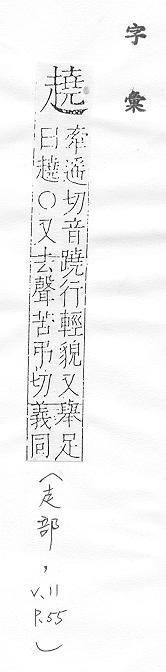 字彙
趬
牽遙切音蹺行輕貌又舉足
曰趬○又去聲苦弔切義同
(走部,
V.11
P.55)